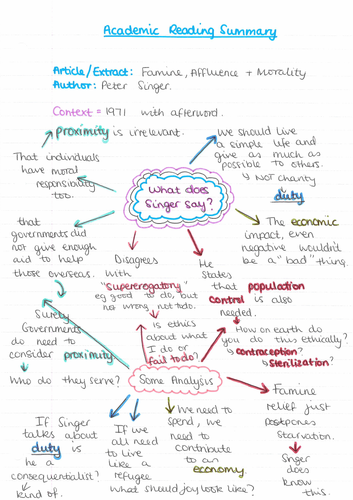 Academic Reading Summary
Article/Extract: Famine, Affluence + Morality
Author: Peter Singer.
Context = 1971 with afterword.
proximity is irrelevant.
We should live
a simple life and
give as much as
possible to others.
↳ NOT charity
duty
That individuals
have moral
responsibility
too.
What does
Singer say?
that
governments did
not give enough
aid to help
those overseas.
The economic
impact, even
negative wouldn't
be a "bad" thing.
Disagrees
with
"supererogatory"
eg good to do, but
not wrong not todo.
He
States
that population
control is also
needed.
Surely
Governments
do need to
consider proximity
↳ Who do they serve?
is ethics
about what
I do or
fail to do?
How on earth do
you do this ethically?
↳ contraception?
↳ sterilization?
Some Analysis
Famine
relief just
postpones
starvation.
Singer
does
know
this.
If Singer
talks about
duty is
he a
consequentialist?
↳ kind of.
If we
all need
to live
like a
refugee
what should joy look like?
We need to
spend, we
need to
contribute
to an
economy.